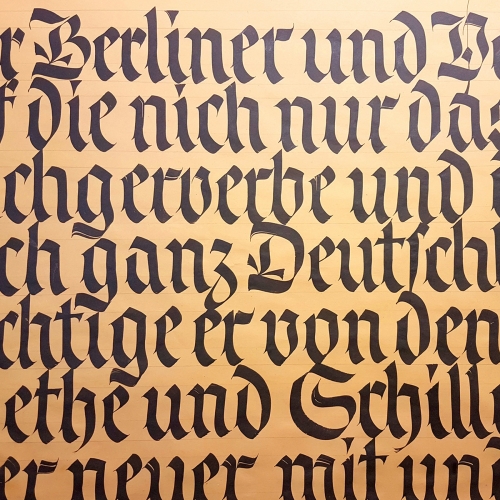 r Berliner und
f die nich nur das
chgerverbe und
ch ganz Deutschl
chtige er von den
ethe und Schill
er neuer mit un